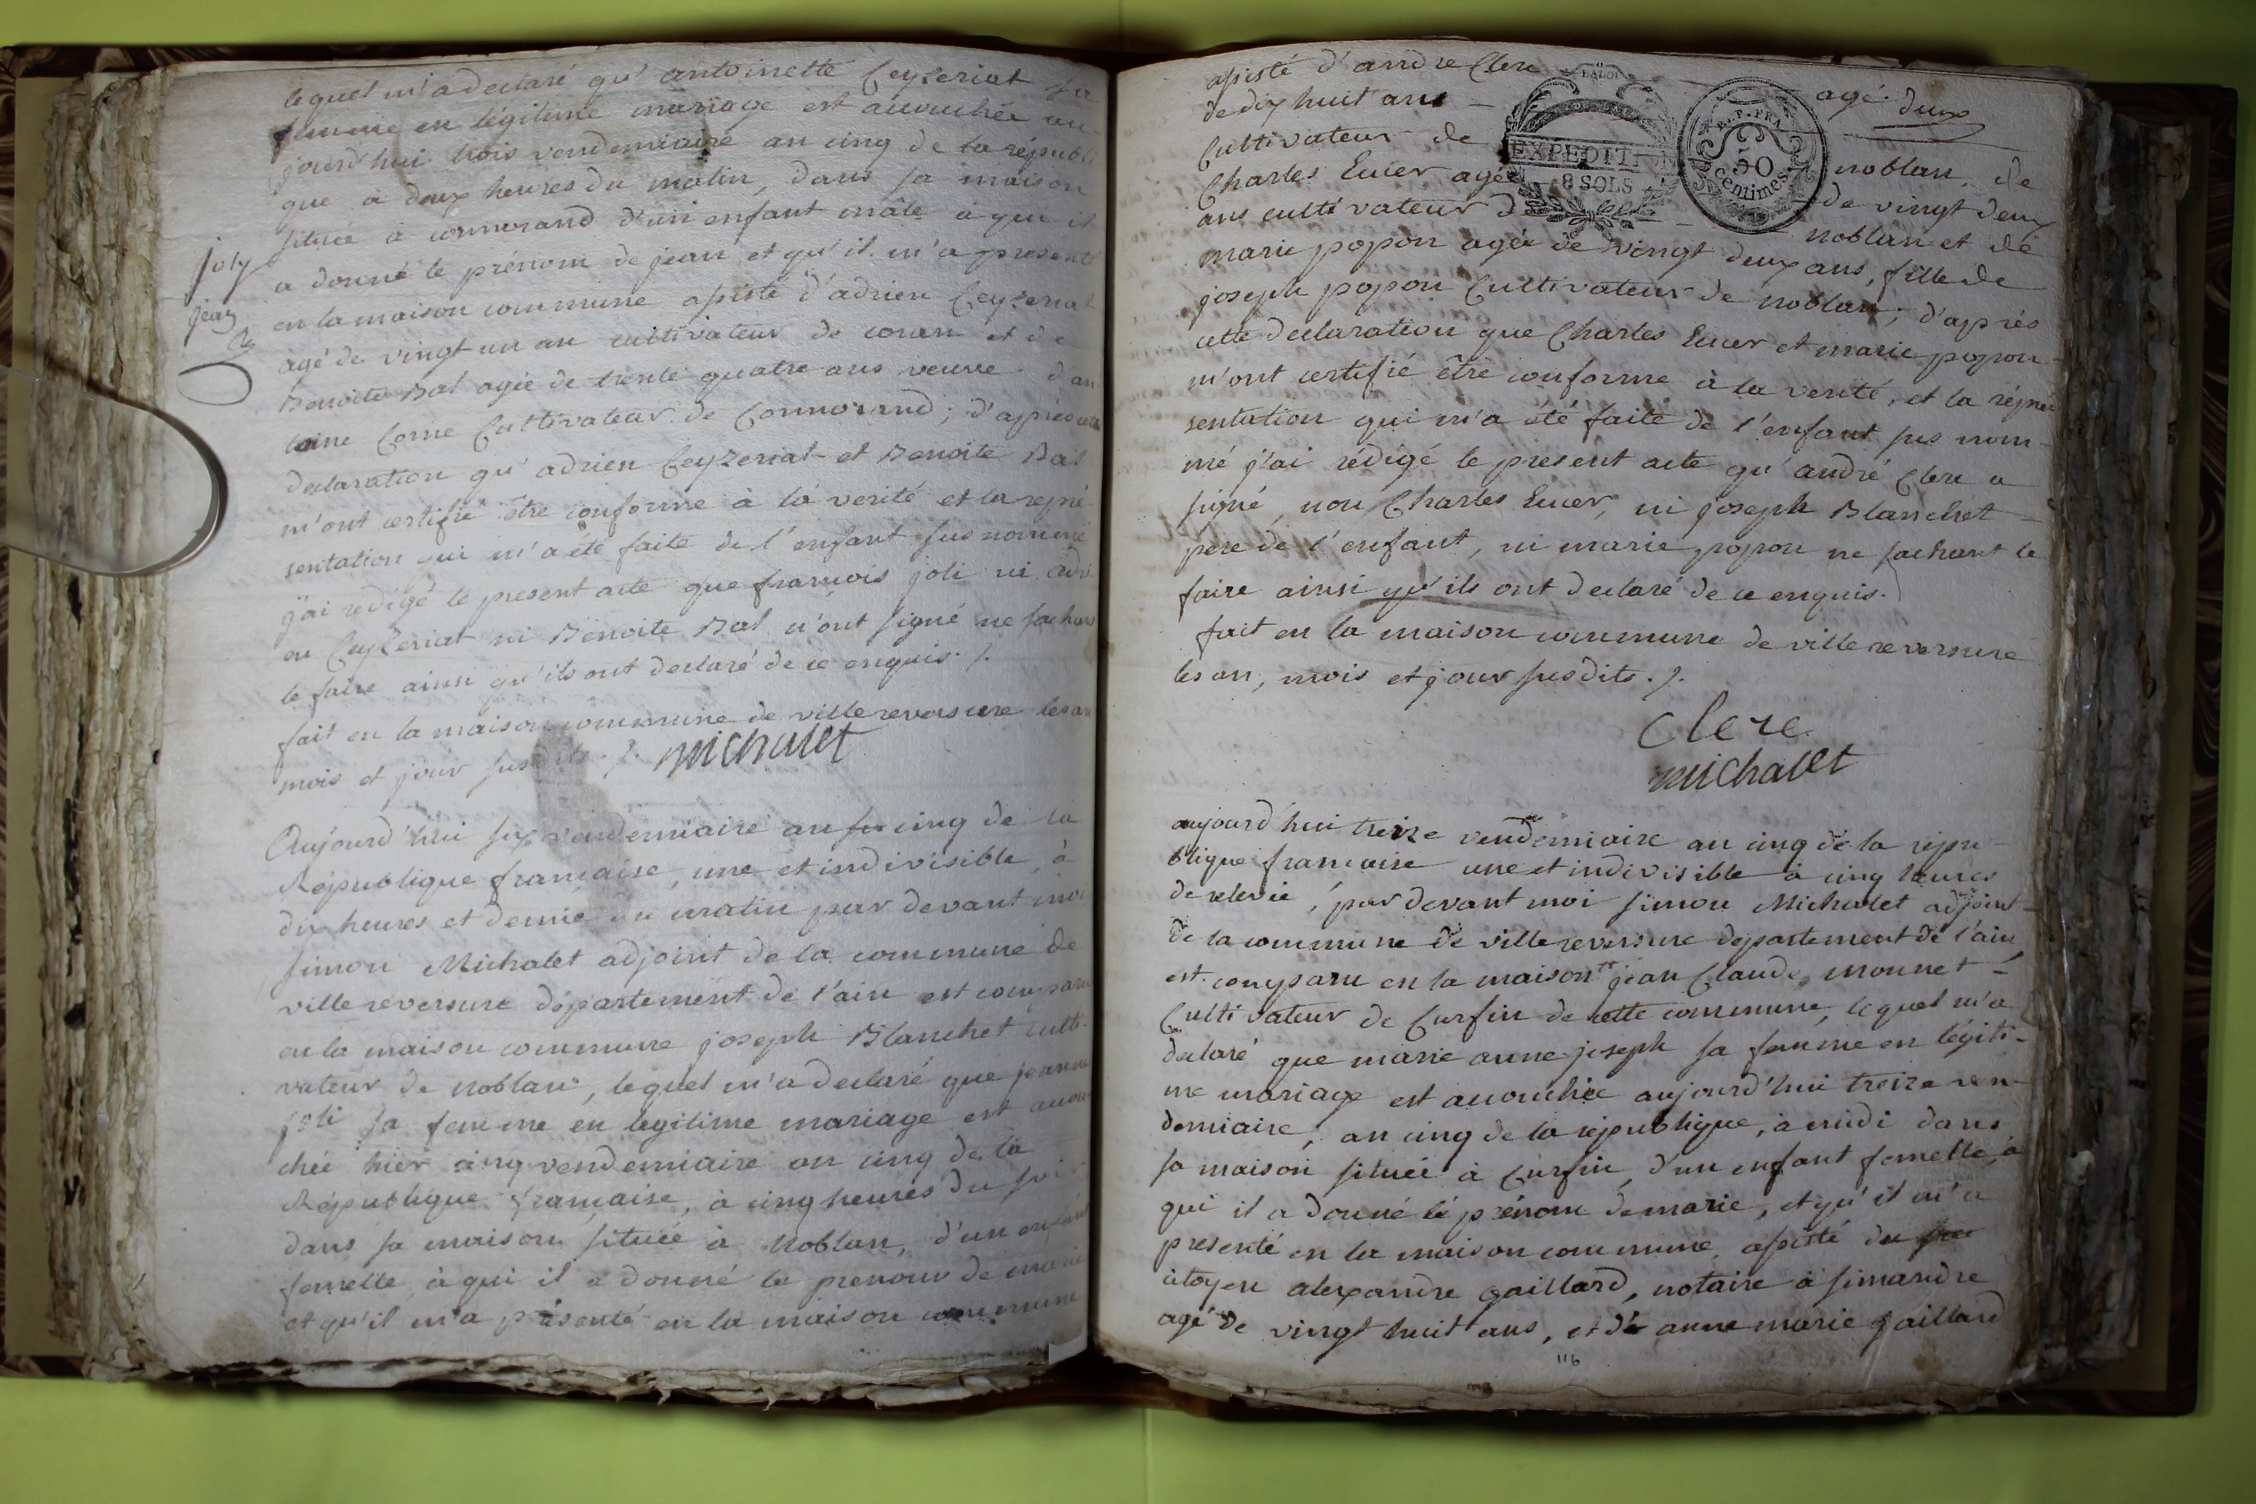 lequel m'a declaré qu'antoinette Ceyzeriat sa
femme en légitime mariage est accouchée au-
jourd'hui trois vendemiaire an cinq de la républi
que à deux heures du matin, dans sa maison
située à cormorand d'un enfant mâle à qui il
a donné le prénom de jean et qu'il m'a presenté
en la maison commune assisté d'adrien Ceyzeriat
agé de vingt un an cultivateur de coran et de
Benoite Bal agée de trente quatre ans veuve d'an
toine Corne Cultivateur de Cormorand; d'après cette
declaration qu'adrien Ceyzeriat et Benoite Bal
m'ont certifié être conforme à la verité et la repré
sentation qui m'a été faite de l'enfant sus nommé
j'ai redigé le present acte que francois joli ni adri
en Ceyzeriat ni Benoite Bal n'ont signé ne sachant
le faire ainsi qu'ils ont declaré de ce enquis ./.
fait en la maison commune de villereversure les an
mois et jour susdits ./. michalet
joly
jean
Aujourd'hui six vendemiaire an cinq de la
République francaise, une et indivisible, à
dix heures et demie du matin par devant moi
simon Michalet adjoint de la commune de
villereversure département de l'ain est comparu
en la maison commune joseph Blanchet culti-
vateur de noblan, lequel m'a declaré que jeanne
joli sa femme en legitime mariage est accou
chée hier cinq vendemiaire an cinq de la
République francaise, à cinq heures du soir
dans sa maison située à noblan, d'un enfant
femelle à qui il a donné le prenom de marie
et qu'il m'a présenté en la maison commune
assisté d'andre Clerc agé deux
de dix huit ans -
Cultivateur de noblan, de
Charles Ecuer agée de vingt deux
ans cultivateur de noblan et de
EXPEDITION
8 SOLS
REP. FRA.
50
Centimes
marie popon agée de vingt deux ans, fille de
joseph popon Cultivateur de noblan; d'après
cette declaration que Charles Ecuer et marie popon
m'ont certifié être conforme à la verité, et la répré
sentation qui m'a été faite de l'enfant sus nom-
mé j'ai rédigé le present acte qu'andré Clerc a
signé, non Charles Ecuer, ni joseph Blanchet
pere de l'enfant, ni marie popon ne sachant le
faire ainsi qu'ils ont declaré de ce enquis.
fait en la maison commune de villereversure
les an, mois et jour susdits ./.
Clerc
michalet
aujourd'hui treize vendemiaire an cinq de la répu-
blique francaise une et indivisible à cinq heures
de relevée, par devant moi simon Michalet adjoint
de la commune de villereversure département de l'ain
est comparu en la maison jean Claude monnet
Cultivateur de Curfin de cette commune, lequel m'a
declaré que marie anne joseph sa femme en légiti-
me mariage est accouchée aujourd'hui treize ven-
demiaire, an cinq de la république, à midi dans
sa maison située à Curfin, d'un enfant femelle, à
qui il a donné le prénom de marie, et qu'il m'a
presenté en la maison commune, assisté du
citoyen alexandre gaillard, notaire à simandre
agé de vingt huit ans, et de anne marie gaillard
116